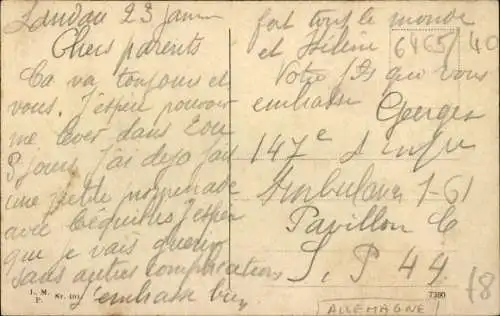 Landau 23 janv
Chers parents
Ca va toujours et
vous. J'espere pouvoir
me lever dans 2 ou
3 jours j'ai dejo fait
une petite promenade
avec bequilles J'espere
que je vais guerir
sans autres complications
J'embrasse bien
fort tout le monde
et Hélène
Votre fils qui vous
embrasse
Georges
147e d'infie
Ambulance 1-61
Pavillon C
S. P 44.
6465/40
18
L. M.
P. Nr. 101
7380
ALLEMAGNE